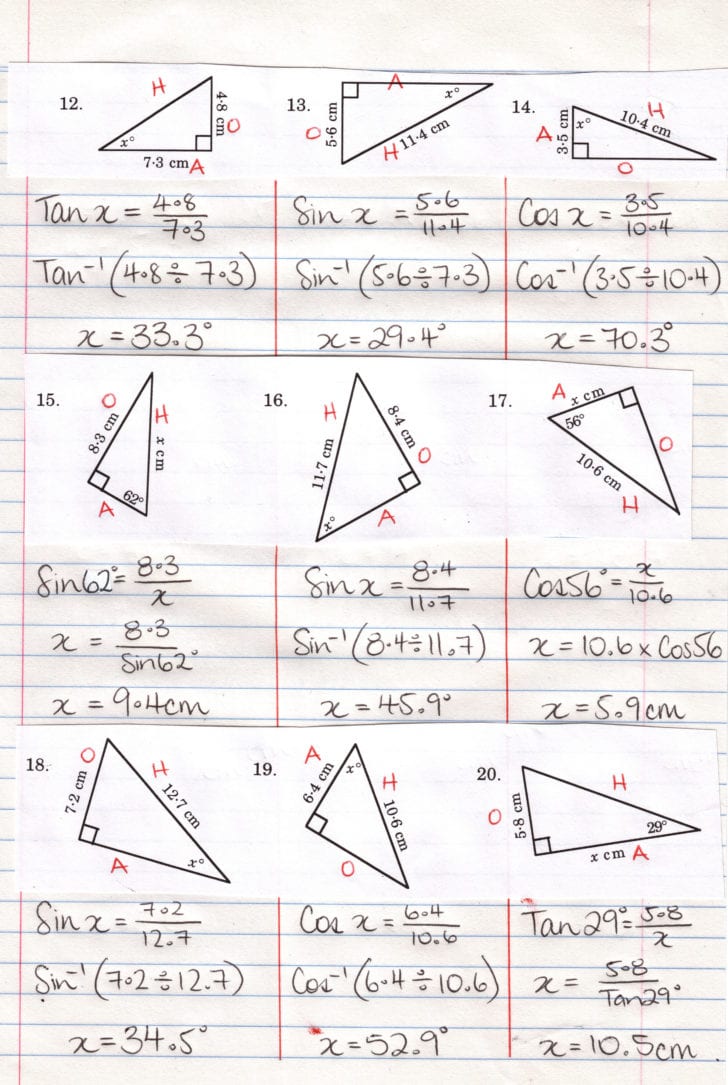 12.
H
4·8 cm
O
x°
7·3 cm A
13.
A
x°
O
5·6 cm
H 11·4 cm
14.
H
10·4 cm
A
3·5 cm
x°
O
Tan x = 4.8/7.3
Tan⁻¹(4.8÷7.3)
x = 33.3°
Sin x = 5.6/11.4
Sin⁻¹(5.6÷7.3)
x = 29.4°
Cos x = 3.5/10.4
Cos⁻¹(3.5÷10.4)
x = 70.3°
15.
O
8·3 cm
H
x cm
A
62°
16.
H
11·7 cm
8·4 cm
O
x°
A
17.
A
x cm
56°
O
10·6 cm
H
Sin62° = 8.3/x
x = 8.3/Sin62°
x = 9.4cm
Sin x = 8.4/11.7
Sin⁻¹(8.4÷11.7)
x = 45.9°
Cos56° = x/10.6
x = 10.6 x Cos56
x = 5.9cm
18.
O
7·2 cm
H
12·7 cm
A
x°
19.
A
6·4 cm
x°
H
10·6 cm
O
20.
H
O
5·8 cm
29°
x cm A
Sin x = 7.2/12.7
Sin⁻¹(7.2÷12.7)
x = 34.5°
Cos x = 6.4/10.6
Cos⁻¹(6.4÷10.6)
x = 52.9°
Tan29° = 5.8/x
x = 5.8/Tan29°
x = 10.5cm